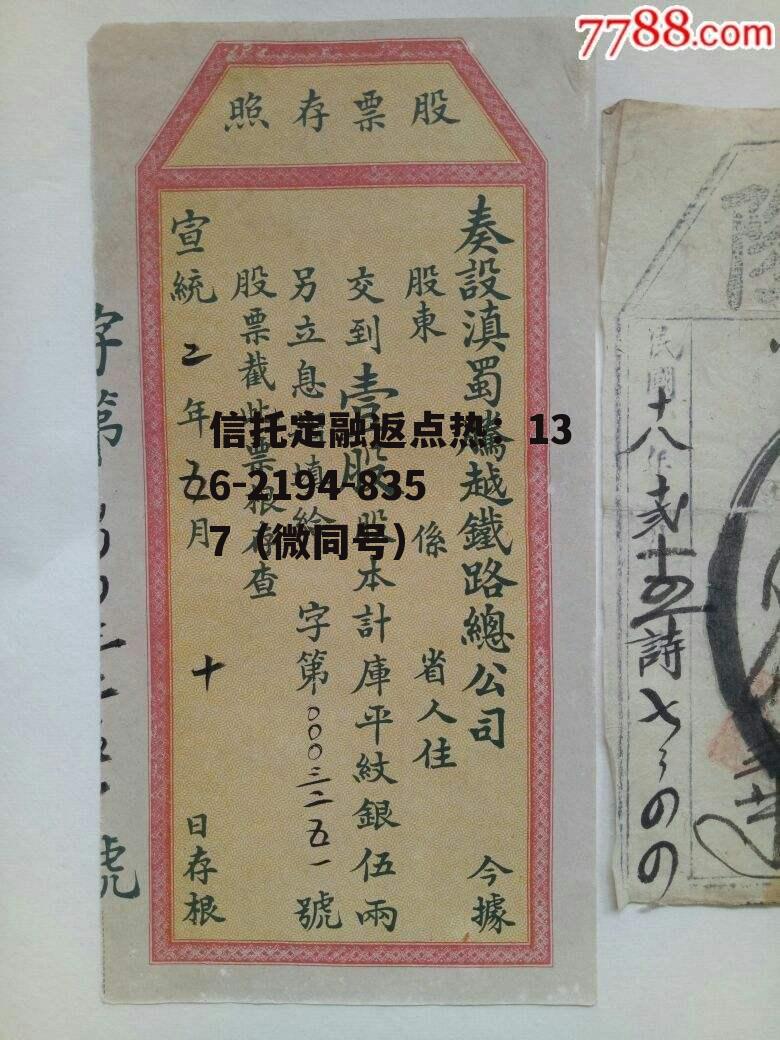 7788.com
股票存照
奏設滇蜀騰越鐵路總公司 今據
股東 係 省人住
交到壹股股本計庫平紋銀伍兩
另立息摺填給 字第〇〇〇三二五一號
股票截此票根存查
宣統二年五月 十 日存根
字第 號
信托定融返点热：13
6-2194-835
7（微同号）
民國十八年